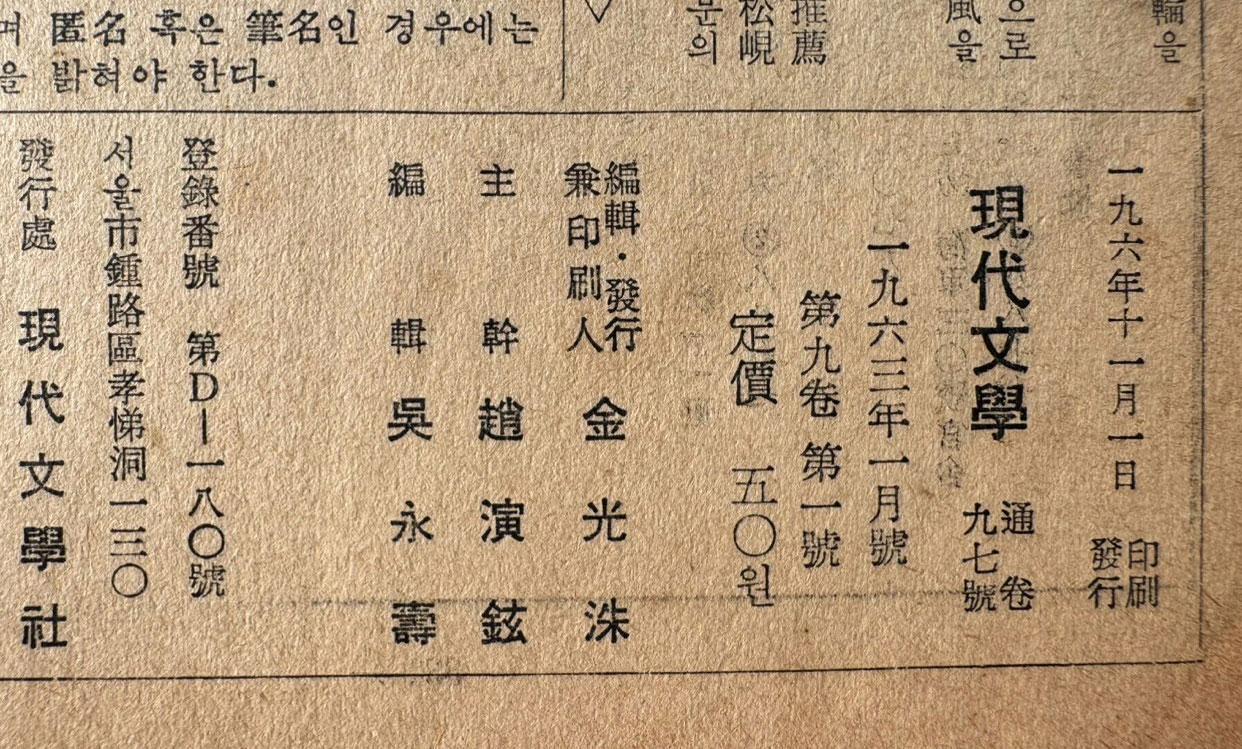 輪을
으로
風을
推薦
松峴
문의
며 匿名 혹은 筆名인 경우에는
을 밝혀야 한다.
一九六年十一月一日 印刷
發行
現代文學 通卷
九七號
一九六三年一月號
第九卷 第一號
定價 五〇원
編輯・發行
兼印刷人 金光洙
主幹 趙演鉉
編輯 吳永壽
登錄番號 第D一一八〇號
서울市鍾路區孝悌洞一三〇
發行處 現代文學社